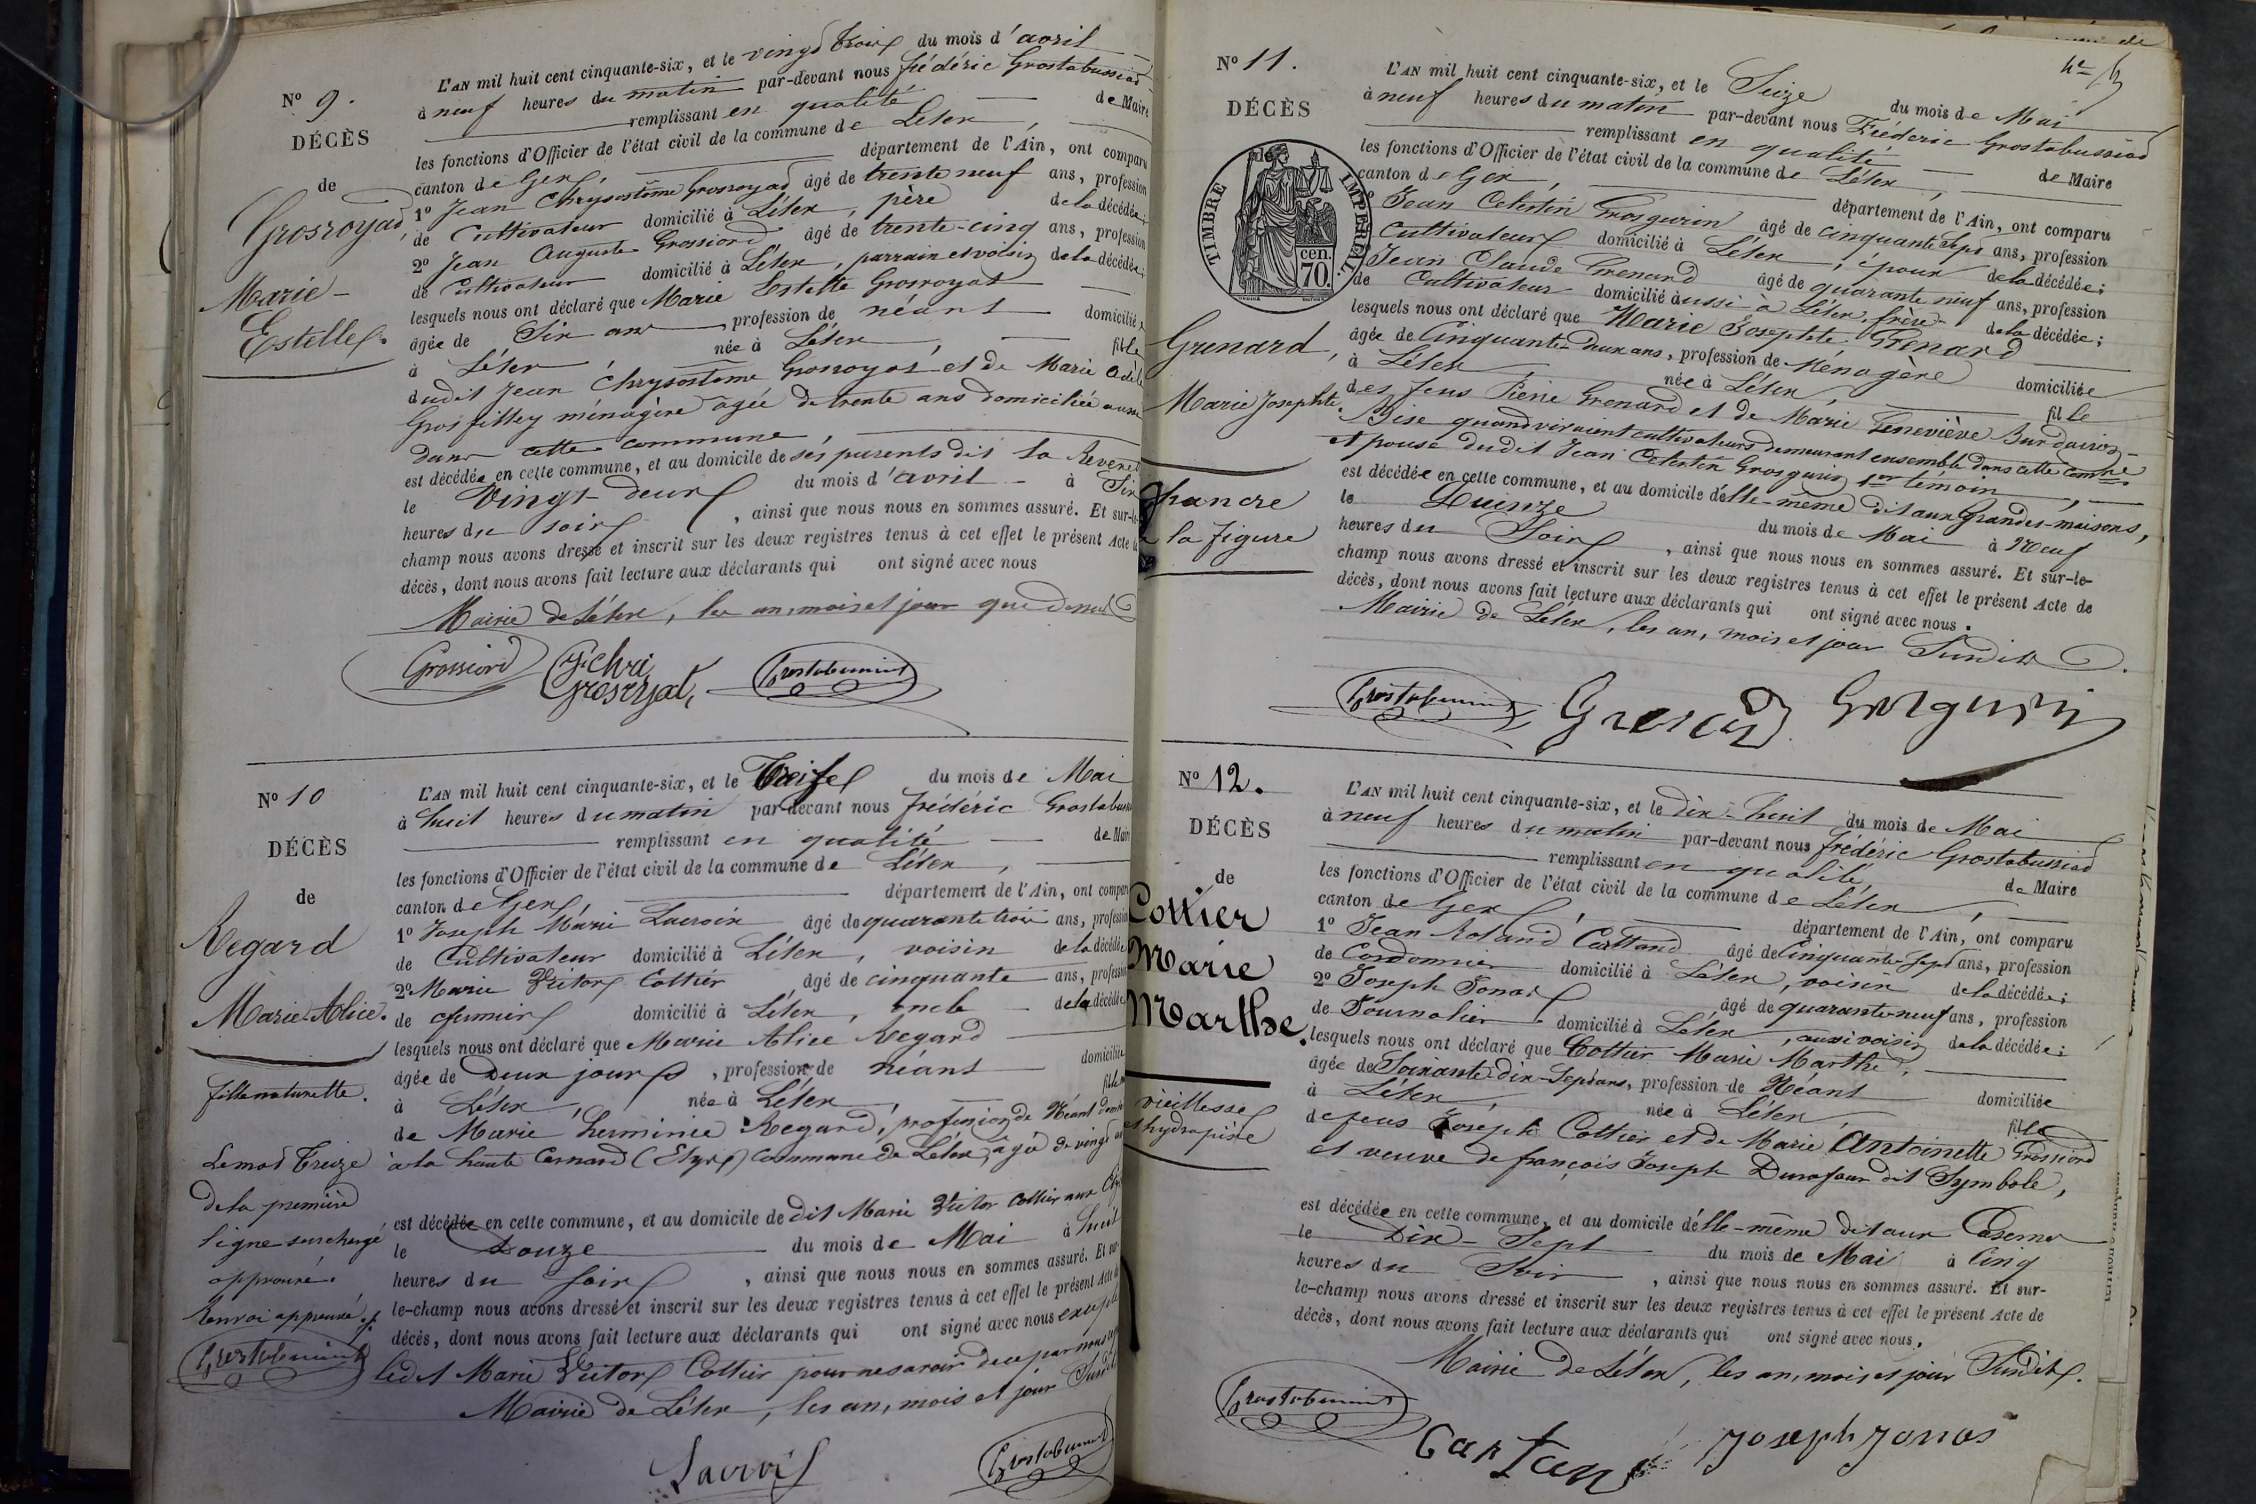 N° 9.
DÉCÈS
de
Grosroyat,
Marie-
Estelle.
L'AN mil huit cent cinquante-six, et le vingt trois du mois d'avril
à neuf heures du matin par-devant nous frédéric Grostabussiat
remplissant en qualité de Maire
les fonctions d'Officier de l'état civil de la commune de Lélex,
canton de Gex, département de l'Ain, ont comparu
1° Jean Chrysostôme Grosroyat âgé de trente neuf ans, profession
de Cultivateur domicilié à Lélex, père de la décédée;
2° Jean Auguste Grossiord âgé de trente-cinq ans, profession
de Cultivateur domicilié à Lélex, parrain et voisin de la décédée;
lesquels nous ont déclaré que Marie Estelle Grosroyat
âgée de Six ans, profession de néant domiciliée
à Lélex née à Lélex, fille
dudit Jean Chrysostome Grosroyat et de Marie Adèle
Grosfilley ménagère âgée de trente ans domiciliée aussi
dans cette commune,
est décédée en cette commune, et au domicile de ses parents dit la
le Vingt-deux du mois d'avril à Six
heures du soir, ainsi que nous nous en sommes assuré. Et sur-le-
champ nous avons dressé et inscrit sur les deux registres tenus à cet effet le présent Acte de
décès, dont nous avons fait lecture aux déclarants qui ont signé avec nous
Mairie de Lélex, les an, mois et jour que dessus
Grossiord J. Chri Grosroyat, Grostabussiat
N° 10
DÉCÈS
de
Regard
Marie-Alice.
fille naturelle.
Le mot Treize
de la première
ligne surchargé
approuvé.
Renvoi approuvé
Grostabussiat
L'AN mil huit cent cinquante-six, et le Treize du mois de Mai
à huit heures du matin par-devant nous frédéric Grostabussiat
remplissant en qualité de Maire
les fonctions d'Officier de l'état civil de la commune de Lélex,
canton de Gex, département de l'Ain, ont comparu
1° Joseph Marie Lacroix âgé de quarante trois ans, profession
de Cultivateur domicilié à Lélex, voisin de la décédée
2° Marie Victor Cottier âgé de cinquante ans, profession
de domicilié à Lélex, oncle de la décédée
lesquels nous ont déclaré que Marie Alice Regard
âgée de Deux jours, profession de néant domiciliée
à Lélex, née à Lélex, fille
de Marie herminie Regard, profession de Néant
à la haute commune de Lélex, âgée de vingt
est décédée en cette commune, et au domicile de dit Marie Victor Cottier aux
le Douze du mois de Mai à huit
heures du soir, ainsi que nous nous en sommes assuré. Et sur-
le-champ nous avons dressé et inscrit sur les deux registres tenus à cet effet le présent Acte de
décès, dont nous avons fait lecture aux déclarants qui ont signé avec nous excepté
ledit Marie Victor Cottier pour ne savoir de ce par nous
Mairie de Lélex, les an, mois et jour Susdits
Lacroix Grostabussiat
N° 11.
DÉCÈS
TIMBRE IMPERIAL.
70 cen.
Grenard,
Marie Josephte.
chancre
à la figure
L'AN mil huit cent cinquante-six, et le Seize du mois de Mai
à neuf heures du matin par-devant nous Frédéric Grostabussiat
remplissant en qualité de Maire
les fonctions d'Officier de l'état civil de la commune de Lélex,
canton de Gex, département de l'Ain, ont comparu
Jean Celestin Grosgurin âgé de cinquante sept ans, profession
Cultivateur domicilié à Lélex, époux de la décédée;
Jean Claude Grenard âgé de quarante neuf ans, profession
de Cultivateur domicilié aussi à Lélex, frère de la décédée;
lesquels nous ont déclaré que Marie Josephte Grenard
âgée de Cinquante-deux ans, profession de Ménagère domiciliée
à Lélex née à Lélex, fille
des feus Pierre Grenard et de Marie Geneviève
Bise quand vivaient cultivateurs demeurant ensemble dans cette comne
et épouse dudit Jean Celestin Grosgurin 1er témoin,
est décédée en cette commune, et au domicile d'elle-même dit aux Grandes-maisons,
le Quinze du mois de Mai à Neuf
heures du Soir, ainsi que nous nous en sommes assuré. Et sur-le-
champ nous avons dressé et inscrit sur les deux registres tenus à cet effet le présent Acte de
décès, dont nous avons fait lecture aux déclarants qui ont signé avec nous.
Mairie de Lélex, les an, mois et jour Susdits.
Grostabussiat Grenard Grosgurin
N° 12.
DÉCÈS
de
Cottier
Marie
Marthe.
vieillesse
et hydropisie
L'AN mil huit cent cinquante-six, et le dix-huit du mois de Mai
à neuf heures du matin par-devant nous frédéric Grostabussiat
remplissant en qualité de Maire
les fonctions d'Officier de l'état civil de la commune de Lélex,
canton de Gex, département de l'Ain, ont comparu
1° Jean Roland Cattand âgé de Cinquante-sept ans, profession
de Cordonnier domicilié à Lélex, voisin de la décédée;
2° Joseph Jonas âgé de quarante-neuf ans, profession
de Journalier domicilié à Lélex, aussi voisin de la décédée;
lesquels nous ont déclaré que Cottier Marie Marthe,
âgée de Soixante-dix-Sept ans, profession de Néant domiciliée
à Lélex, née à Lélex, fille
de feus Joseph Cottier et de Marie Antoinette Grossiord
et veuve de françois Joseph Durafour dit Symbole,
est décédée en cette commune, et au domicile d'elle-même dit aux
le Dix-Sept du mois de Mai à Cinq
heures du Soir, ainsi que nous nous en sommes assuré. Et sur-
le-champ nous avons dressé et inscrit sur les deux registres tenus à cet effet le présent Acte de
décès, dont nous avons fait lecture aux déclarants qui ont signé avec nous.
Mairie de Lélex, les an, mois et jour Susdits.
Grostabussiat Joseph Jonas